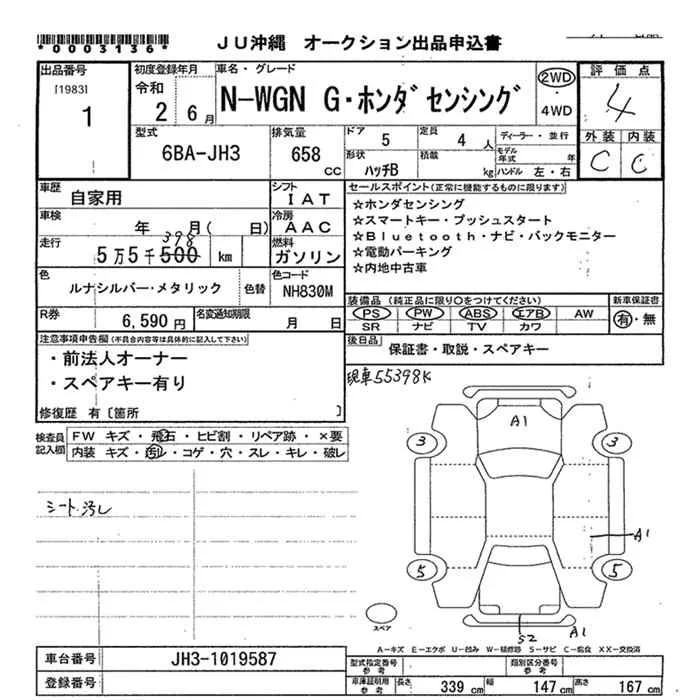 *0003136*
JU沖縄 オークション出品申込書
出品番号 初度登録年月 車名・グレード 評価点
[1983] 1
令和 2 6月
N-WGN G・ホンダセンシング
2WD ・ 4WD
4
外装 内装
C C
型式 6BA-JH3
排気量 658 cc
ドア 5 定員 4人
形状 ハッチB 積載 kg
ディーラー・並行
モデル年式 年
ハンドル 左・右
車歴 自家用
シフト IAT
車検 年 月( 日)
冷房 AAC
走行 5万5千500 km
398
燃料 ガソリン
色 ルナシルバー・メタリック 色替
色コード NH830M
R券 6,590円
名変通知期限 月 日
セールスポイント(正常に機能するものに限ります)
☆ホンダセンシング
☆スマートキー・プッシュスタート
☆Bluetooth・ナビ・バックモニター
☆電動パーキング
☆内地中古車
装備品(純正品に限り○をつけてください) 新車保証書
PS PW ABS エアB AW 有・無
SR ナビ TV カワ
後日品 保証書・取説・スペアキー
注意事項申告欄(不具合内容等は具体的に記入して下さい)
・前法人オーナー
・スペアキー有り
修復歴 有〔箇所 〕
現車55398K
検査員記入欄
FW キズ・飛石・ヒビ割・リペア跡・×要
内装 キズ・汚れ・コゲ・穴・スレ・キレ・破レ
シート汚レ
A1
3 3
A1
5 5
S2 A1
スペア
A-キズ E-エクボ U-凹み W-補修跡 S-サビ C-腐食 XX-交換済
車台番号 JH3-1019587
登録番号
型式指定番号 参考 類別区分番号 参考
車庫証明用 参考 長さ 339cm 幅 147cm 高さ 167cm